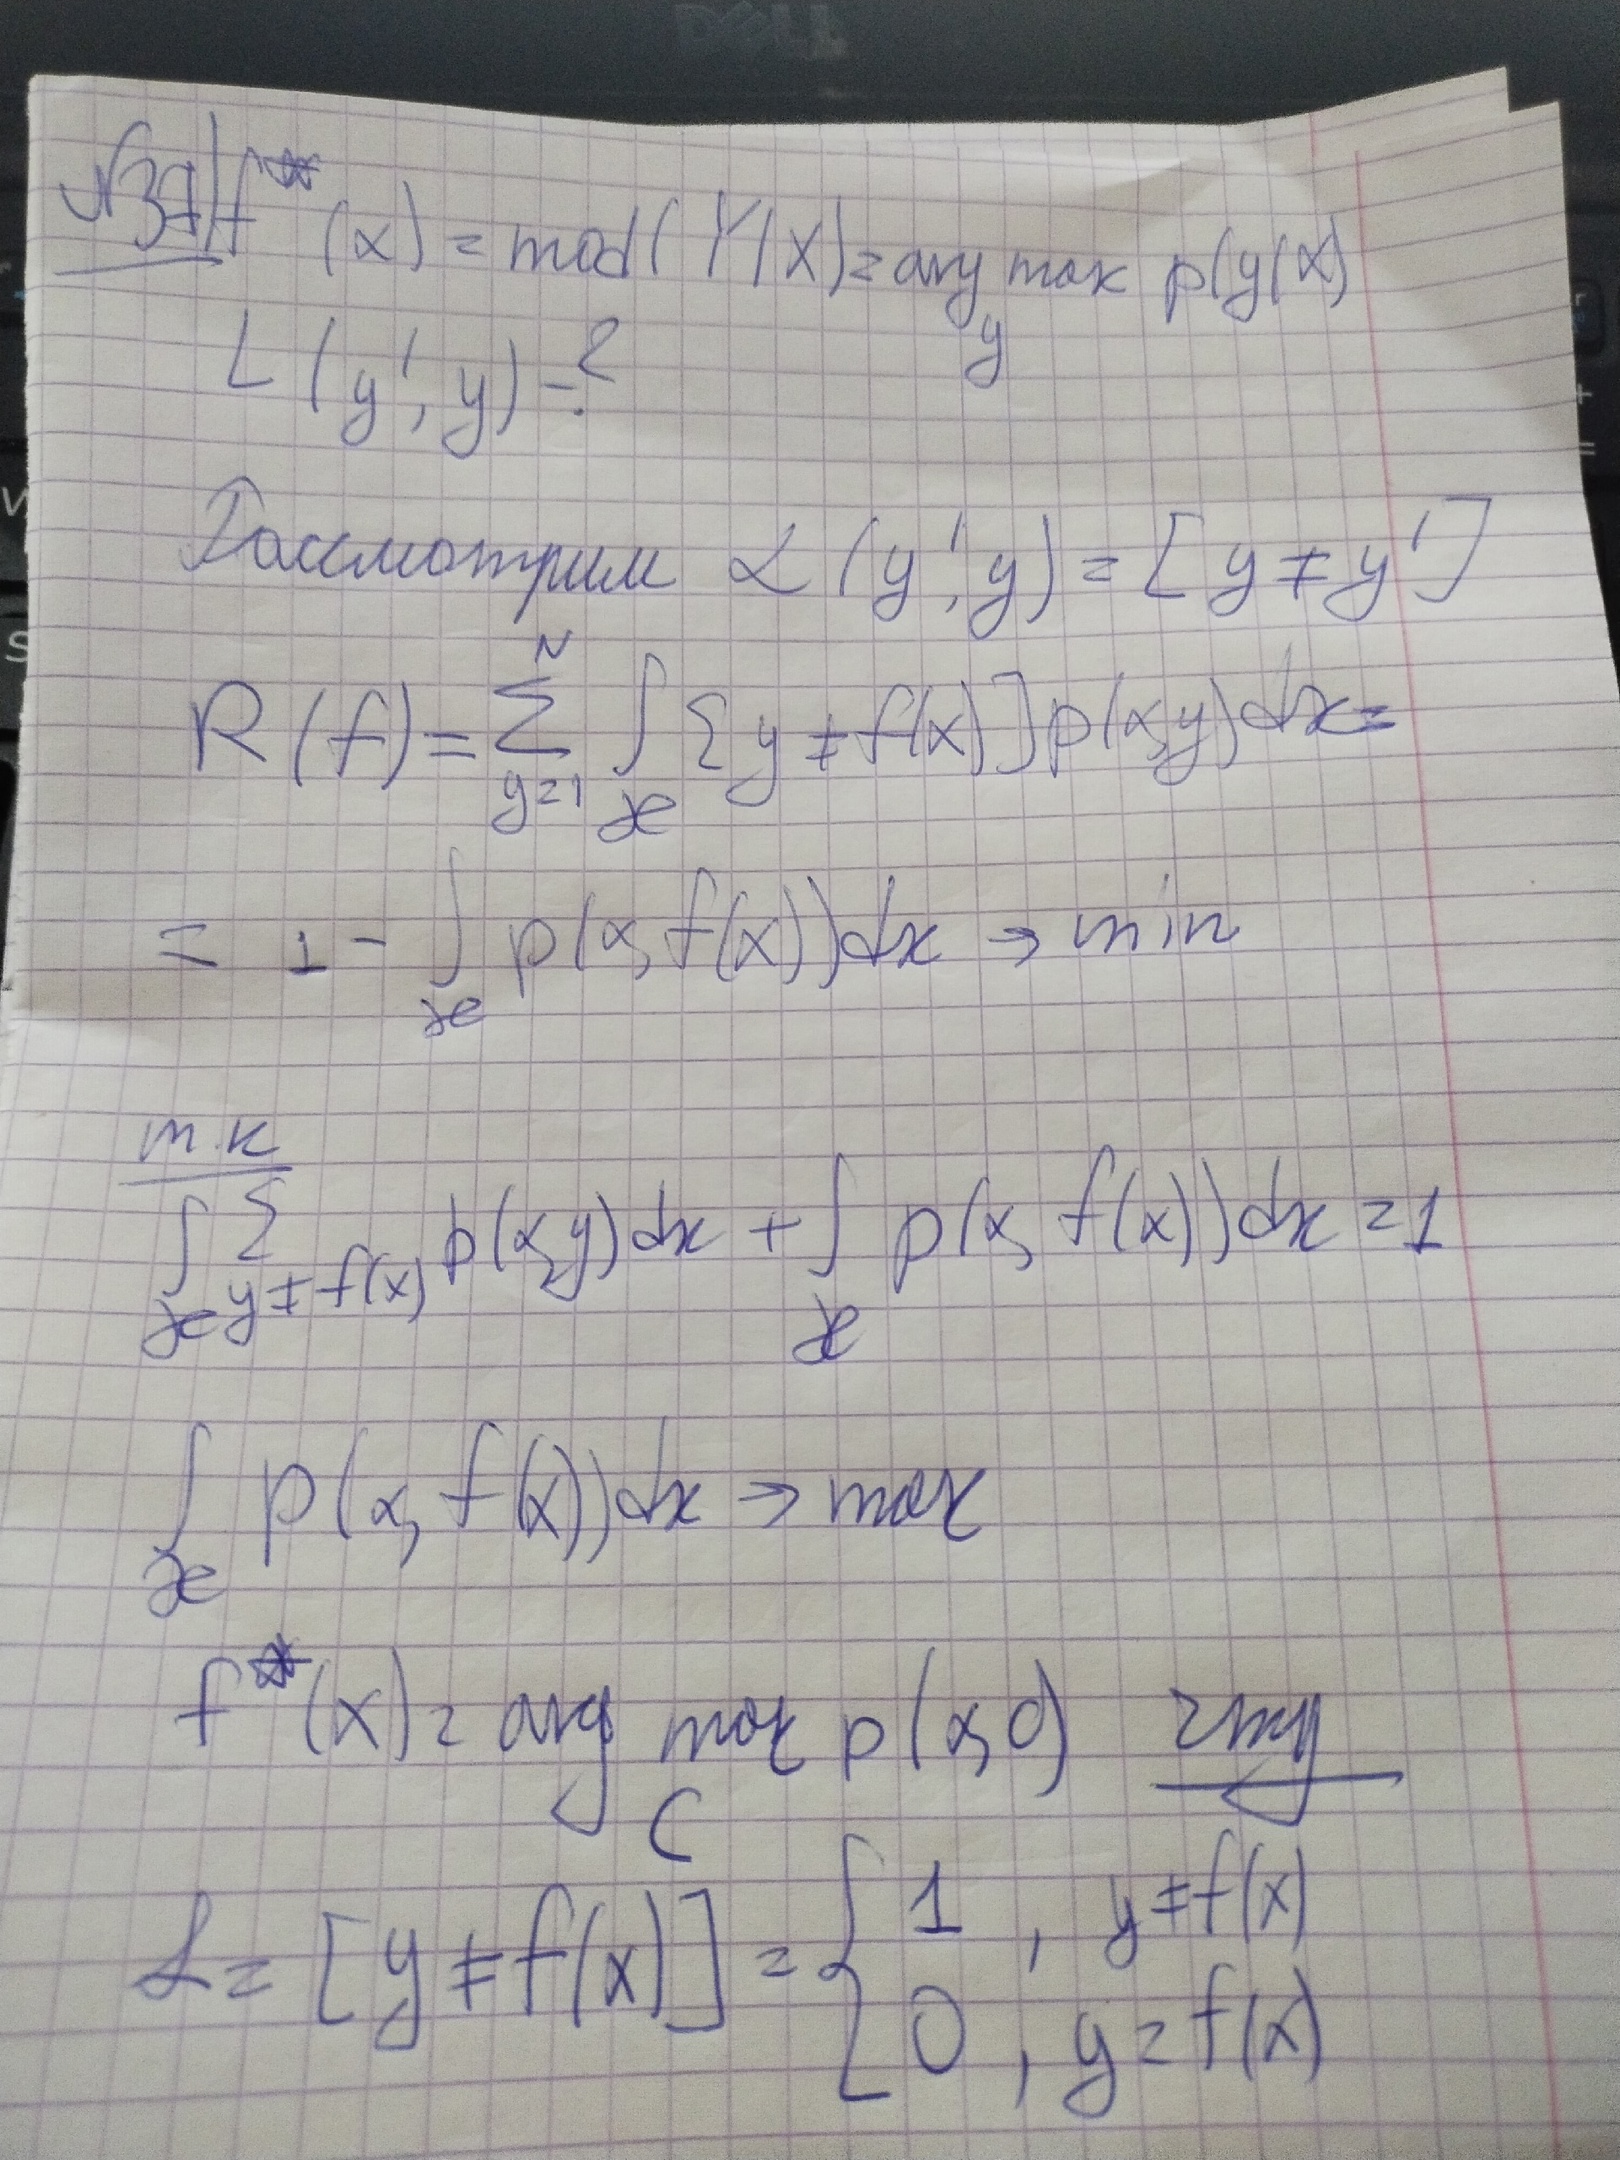 DELL
№37 f*(x) = mod(Y|X) = arg max p(y|x)
y
L(y', y) - ?
Рассмотрим L(y', y) = [y ≠ y']
R(f) = ∑_{y=1}^{N} ∫_X [y ≠ f(x)] p(x,y) dx =
= 1 - ∫_X p(x, f(x)) dx → min
т.к
∫_X ∑_{y≠f(x)} p(x,y) dx + ∫_X p(x, f(x)) dx = 1
∫_X p(x, f(x)) dx → max
f*(x) = arg max p(x,c)
c
L = [y ≠ f(x)] = { 1 , y ≠ f(x)
0 , y = f(x)